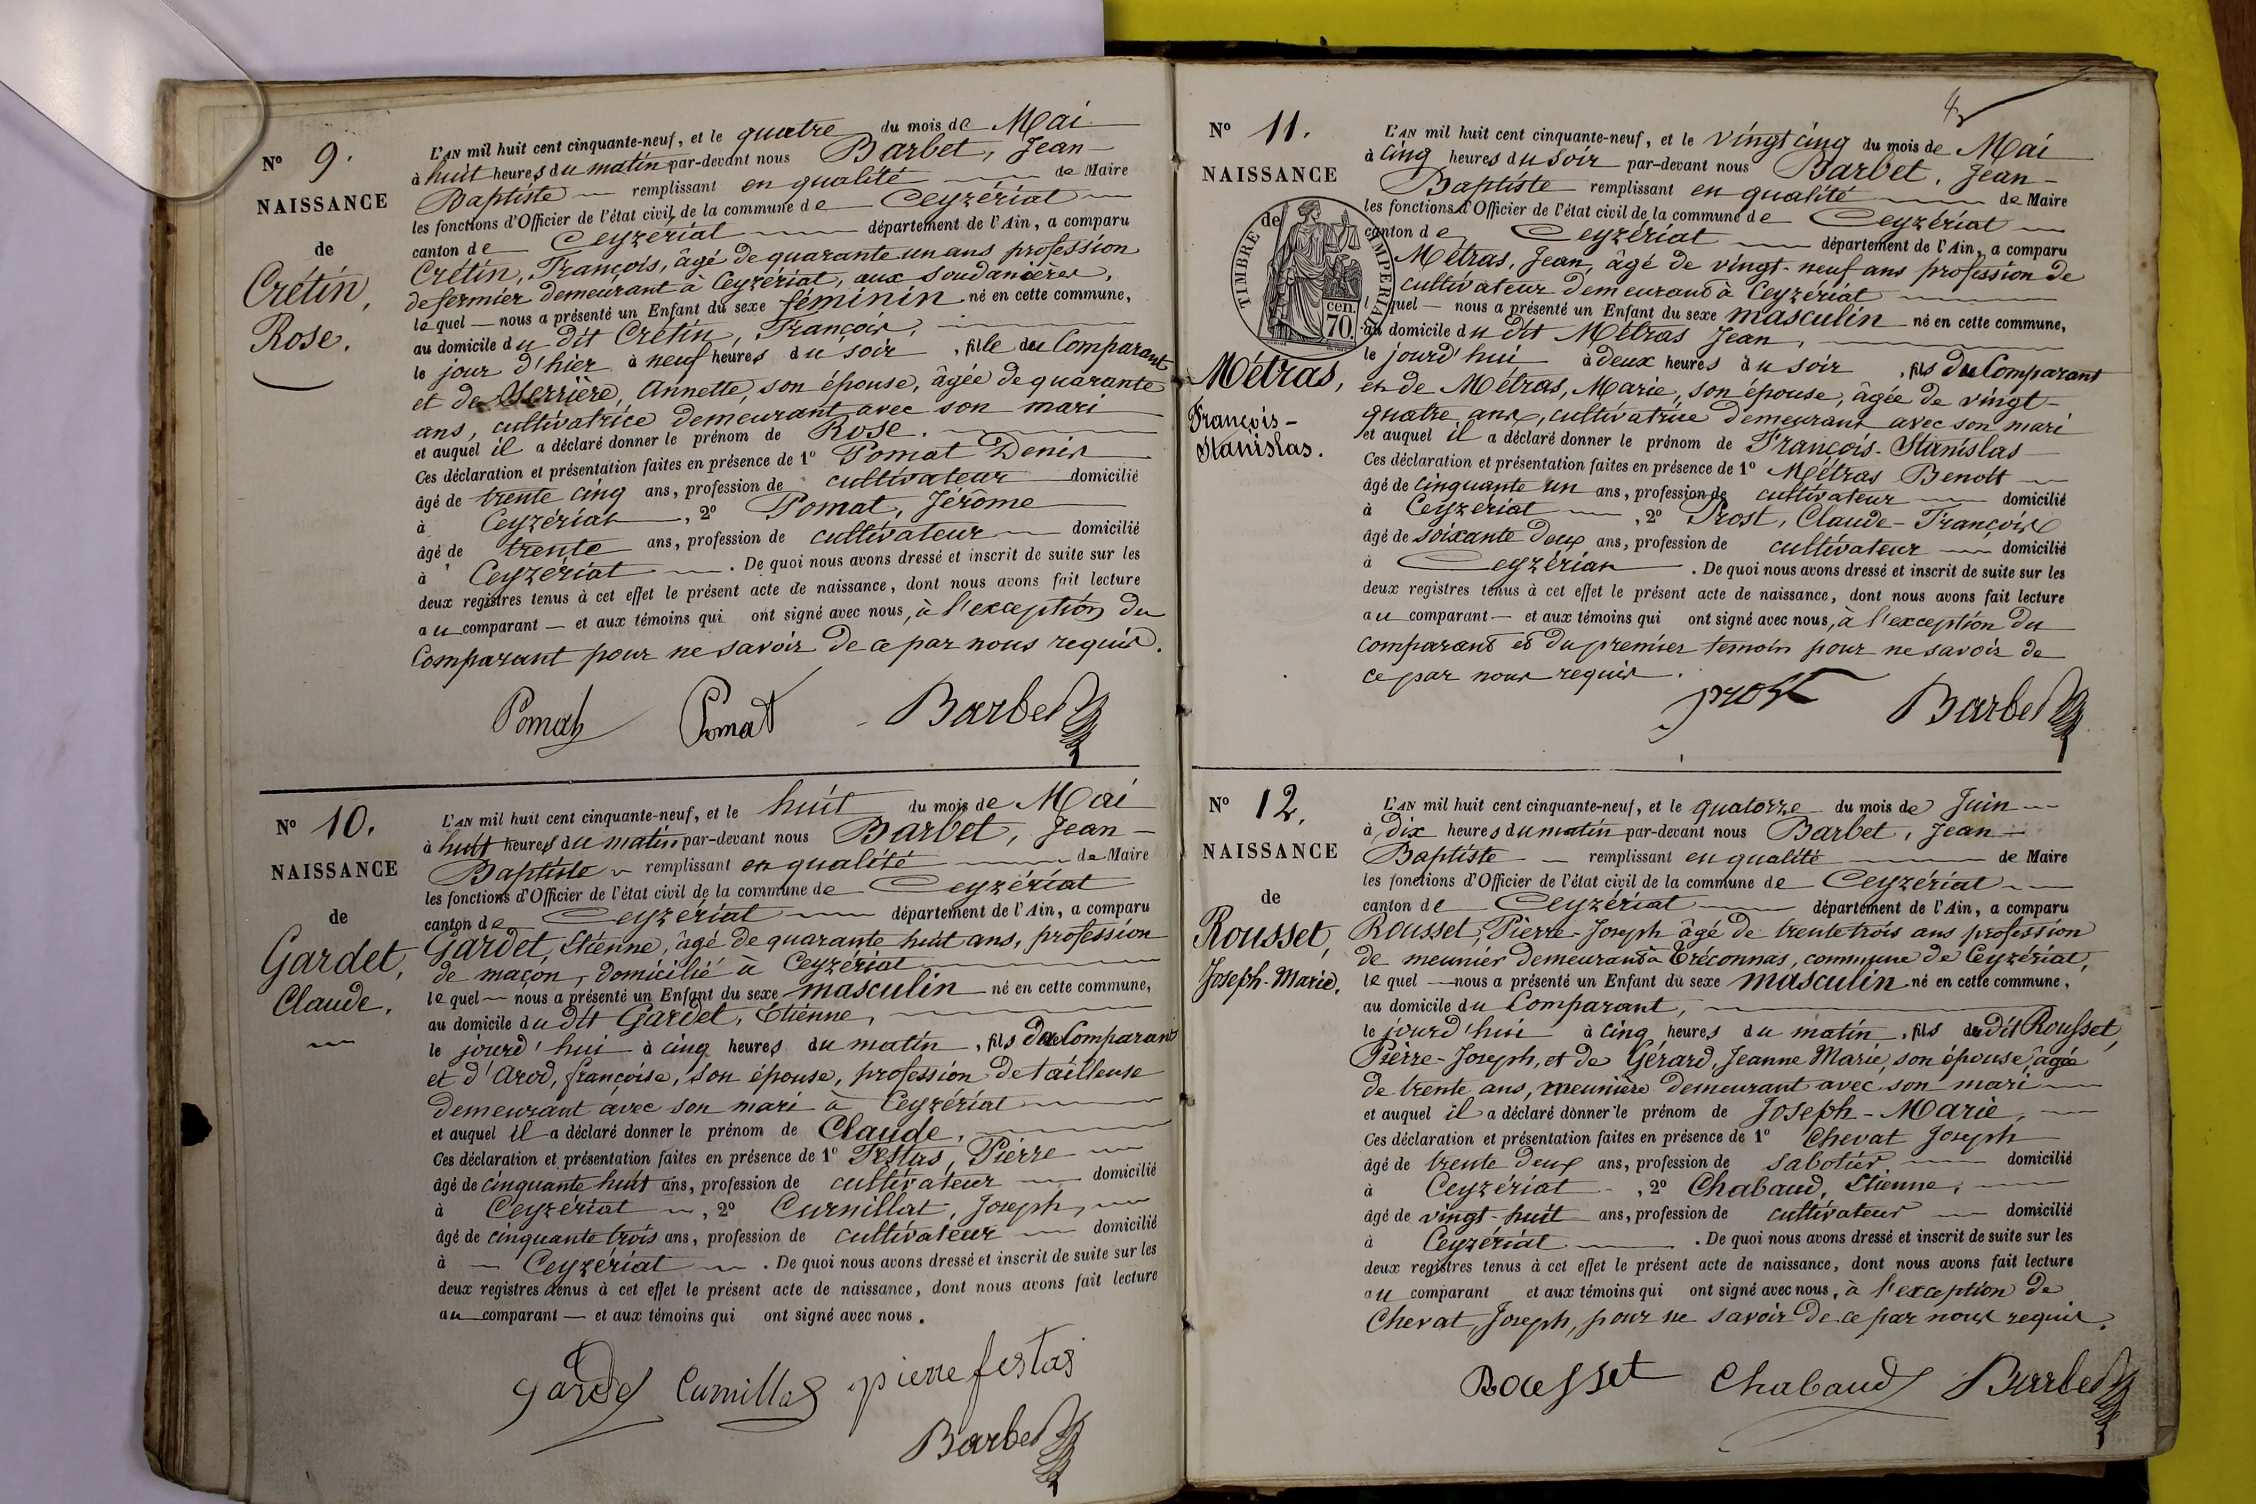 N° 9.
NAISSANCE
de
Crétin,
Rose.
L'AN mil huit cent cinquante-neuf, et le quatre du mois de Mai
à huit heures du matin par-devant nous Barbet, Jean-
Baptiste remplissant en qualité de Maire
les fonctions d'Officier de l'état civil de la commune de Ceyzériat
canton de Ceyzériat département de l'Ain, a comparu
Crétin, François, âgé de quarante un ans profession
de fermier demeurant à Ceyzériat, aux Soudanières,
lequel nous a présenté un Enfant du sexe féminin né en cette commune,
au domicile du dit Crétin, François,
le jour d'hier à neuf heures du soir, fille du Comparant
et de Verrière, Annette, son épouse, âgée de quarante
ans, cultivatrice demeurant avec son mari
et auquel il a déclaré donner le prénom de Rose.
Ces déclaration et présentation faites en présence de 1° Pomat Denis
âgé de trente cinq ans, profession de cultivateur domicilié
à Ceyzériat, 2° Pomat, Jérôme
âgé de trente ans, profession de cultivateur domicilié
à Ceyzériat. De quoi nous avons dressé et inscrit de suite sur les
deux registres tenus à cet effet le présent acte de naissance, dont nous avons fait lecture
au comparant — et aux témoins qui ont signé avec nous, à l'exception du
Comparant pour ne savoir de ce par nous requis.
Pomat Pomat Barbet
N° 10.
NAISSANCE
de
Gardet,
Claude.
L'AN mil huit cent cinquante-neuf, et le huit du mois de Mai
à huit heures du matin par-devant nous Barbet, Jean-
Baptiste remplissant en qualité de Maire
les fonctions d'Officier de l'état civil de la commune de Ceyzériat
canton de Ceyzériat département de l'Ain, a comparu
Gardet, Etienne, âgé de quarante huit ans, profession
de maçon, domicilié à Ceyzériat
lequel nous a présenté un Enfant du sexe masculin né en cette commune,
au domicile du dit Gardet, Etienne,
le jourd'hui à cinq heures du matin, fils du Comparant
et d'Arod, françoise, son épouse, profession de tailleuse
demeurant avec son mari à Ceyzériat
et auquel il a déclaré donner le prénom de Claude,
Ces déclaration et présentation faites en présence de 1° Festas, Pierre
âgé de cinquante huit ans, profession de cultivateur domicilié
à Ceyzériat, 2° Curnillat, Joseph,
âgé de cinquante trois ans, profession de cultivateur domicilié
à Ceyzériat. De quoi nous avons dressé et inscrit de suite sur les
deux registres tenus à cet effet le présent acte de naissance, dont nous avons fait lecture
au comparant — et aux témoins qui ont signé avec nous.
Gardet Curnillat pierre festas
Barbet
N° 11.
NAISSANCE
de
TIMBRE IMPERIAL
70 cen.
Métras,
François-
Stanislas.
L'AN mil huit cent cinquante-neuf, et le vingt cinq du mois de Mai
à cinq heures du soir par-devant nous Barbet, Jean-
Baptiste remplissant en qualité de Maire
les fonctions d'Officier de l'état civil de la commune de Ceyzériat
canton de Ceyzériat département de l'Ain, a comparu
Métras, Jean, âgé de vingt-neuf ans profession de
cultivateur demeurant à Ceyzériat
lequel — nous a présenté un Enfant du sexe masculin né en cette commune,
au domicile du dit Métras Jean,
le jourd'hui à deux heures du soir, fils du Comparant
et de Métras, Marie, son épouse, âgée de vingt-
quatre ans, cultivatrice demeurant avec son mari
et auquel il a déclaré donner le prénom de François-Stanislas
Ces déclaration et présentation faites en présence de 1° Métras Benoît
âgé de cinquante un ans, profession de cultivateur domicilié
à Ceyzériat, 2° Prost, Claude-François
âgé de soixante deux ans, profession de cultivateur domicilié
à Ceyzériat. De quoi nous avons dressé et inscrit de suite sur les
deux registres tenus à cet effet le présent acte de naissance, dont nous avons fait lecture
au comparant — et aux témoins qui ont signé avec nous, à l'exception du
comparant et du premier temoin pour ne savoir de
ce par nous requis.
prost Barbet
N° 12.
NAISSANCE
de
Rousset,
Joseph-Marie.
L'AN mil huit cent cinquante-neuf, et le quatorze du mois de Juin
à dix heures du matin par-devant nous Barbet, Jean-
Baptiste remplissant en qualité de Maire
les fonctions d'Officier de l'état civil de la commune de Ceyzériat
canton de Ceyzériat département de l'Ain, a comparu
Rousset, Pierre-Joseph âgé de trente trois ans profession
de meunier demeurant à Tréconnas, commune de Ceyzériat,
lequel — nous a présenté un Enfant du sexe masculin né en cette commune,
au domicile du Comparant,
le jourd'hui à cinq heures du matin, fils du dit Rousset,
Pierre-Joseph, et de Gérard, Jeanne Marie, son épouse, âgée
de trente ans, meunière demeurant avec son mari
et auquel il a déclaré donner le prénom de Joseph-Marie,
Ces déclaration et présentation faites en présence de 1° Chevat Joseph
âgé de trente deux ans, profession de sabotier domicilié
à Ceyzériat, 2° Chabaud, Etienne,
âgé de vingt-huit ans, profession de cultivateur domicilié
à Ceyzériat. De quoi nous avons dressé et inscrit de suite sur les
deux registres tenus à cet effet le présent acte de naissance, dont nous avons fait lecture
au comparant et aux témoins qui ont signé avec nous, à l'exception de
Chevat, Joseph, pour ne savoir de ce par nous requis.
Rousset Chabaud Barbet